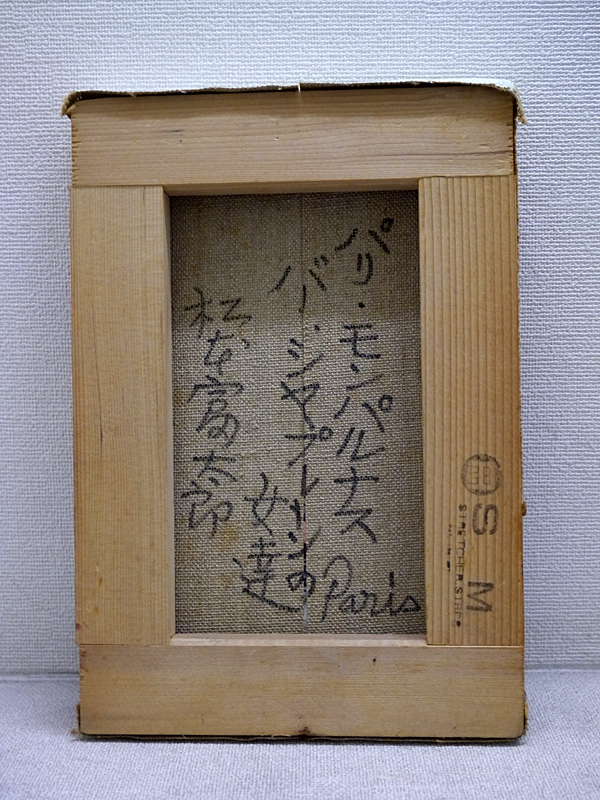 パリ・モンパルナス
Paris
バー・シャプトーンの
女達
松本富太郎
S M